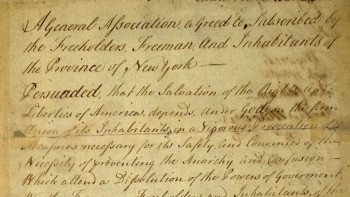 A General Association, agreed to & Subscribed by
the Freeholders, Freemen, And Inhabitants of
the Province of New York —
Persuaded, that the Salvation of the Rights and
Liberties of America, depends, Under God, on the firm
Union of its Inhabitants, in a Vigorous Prosecution of
Measures necessary for its Safety, and Convinced of the
Necessity of preventing the Anarchy and Confusion
Which attend a Dissolution of the Powers of Government,
We the Freemen, Freeholders and Inhabitants, of the